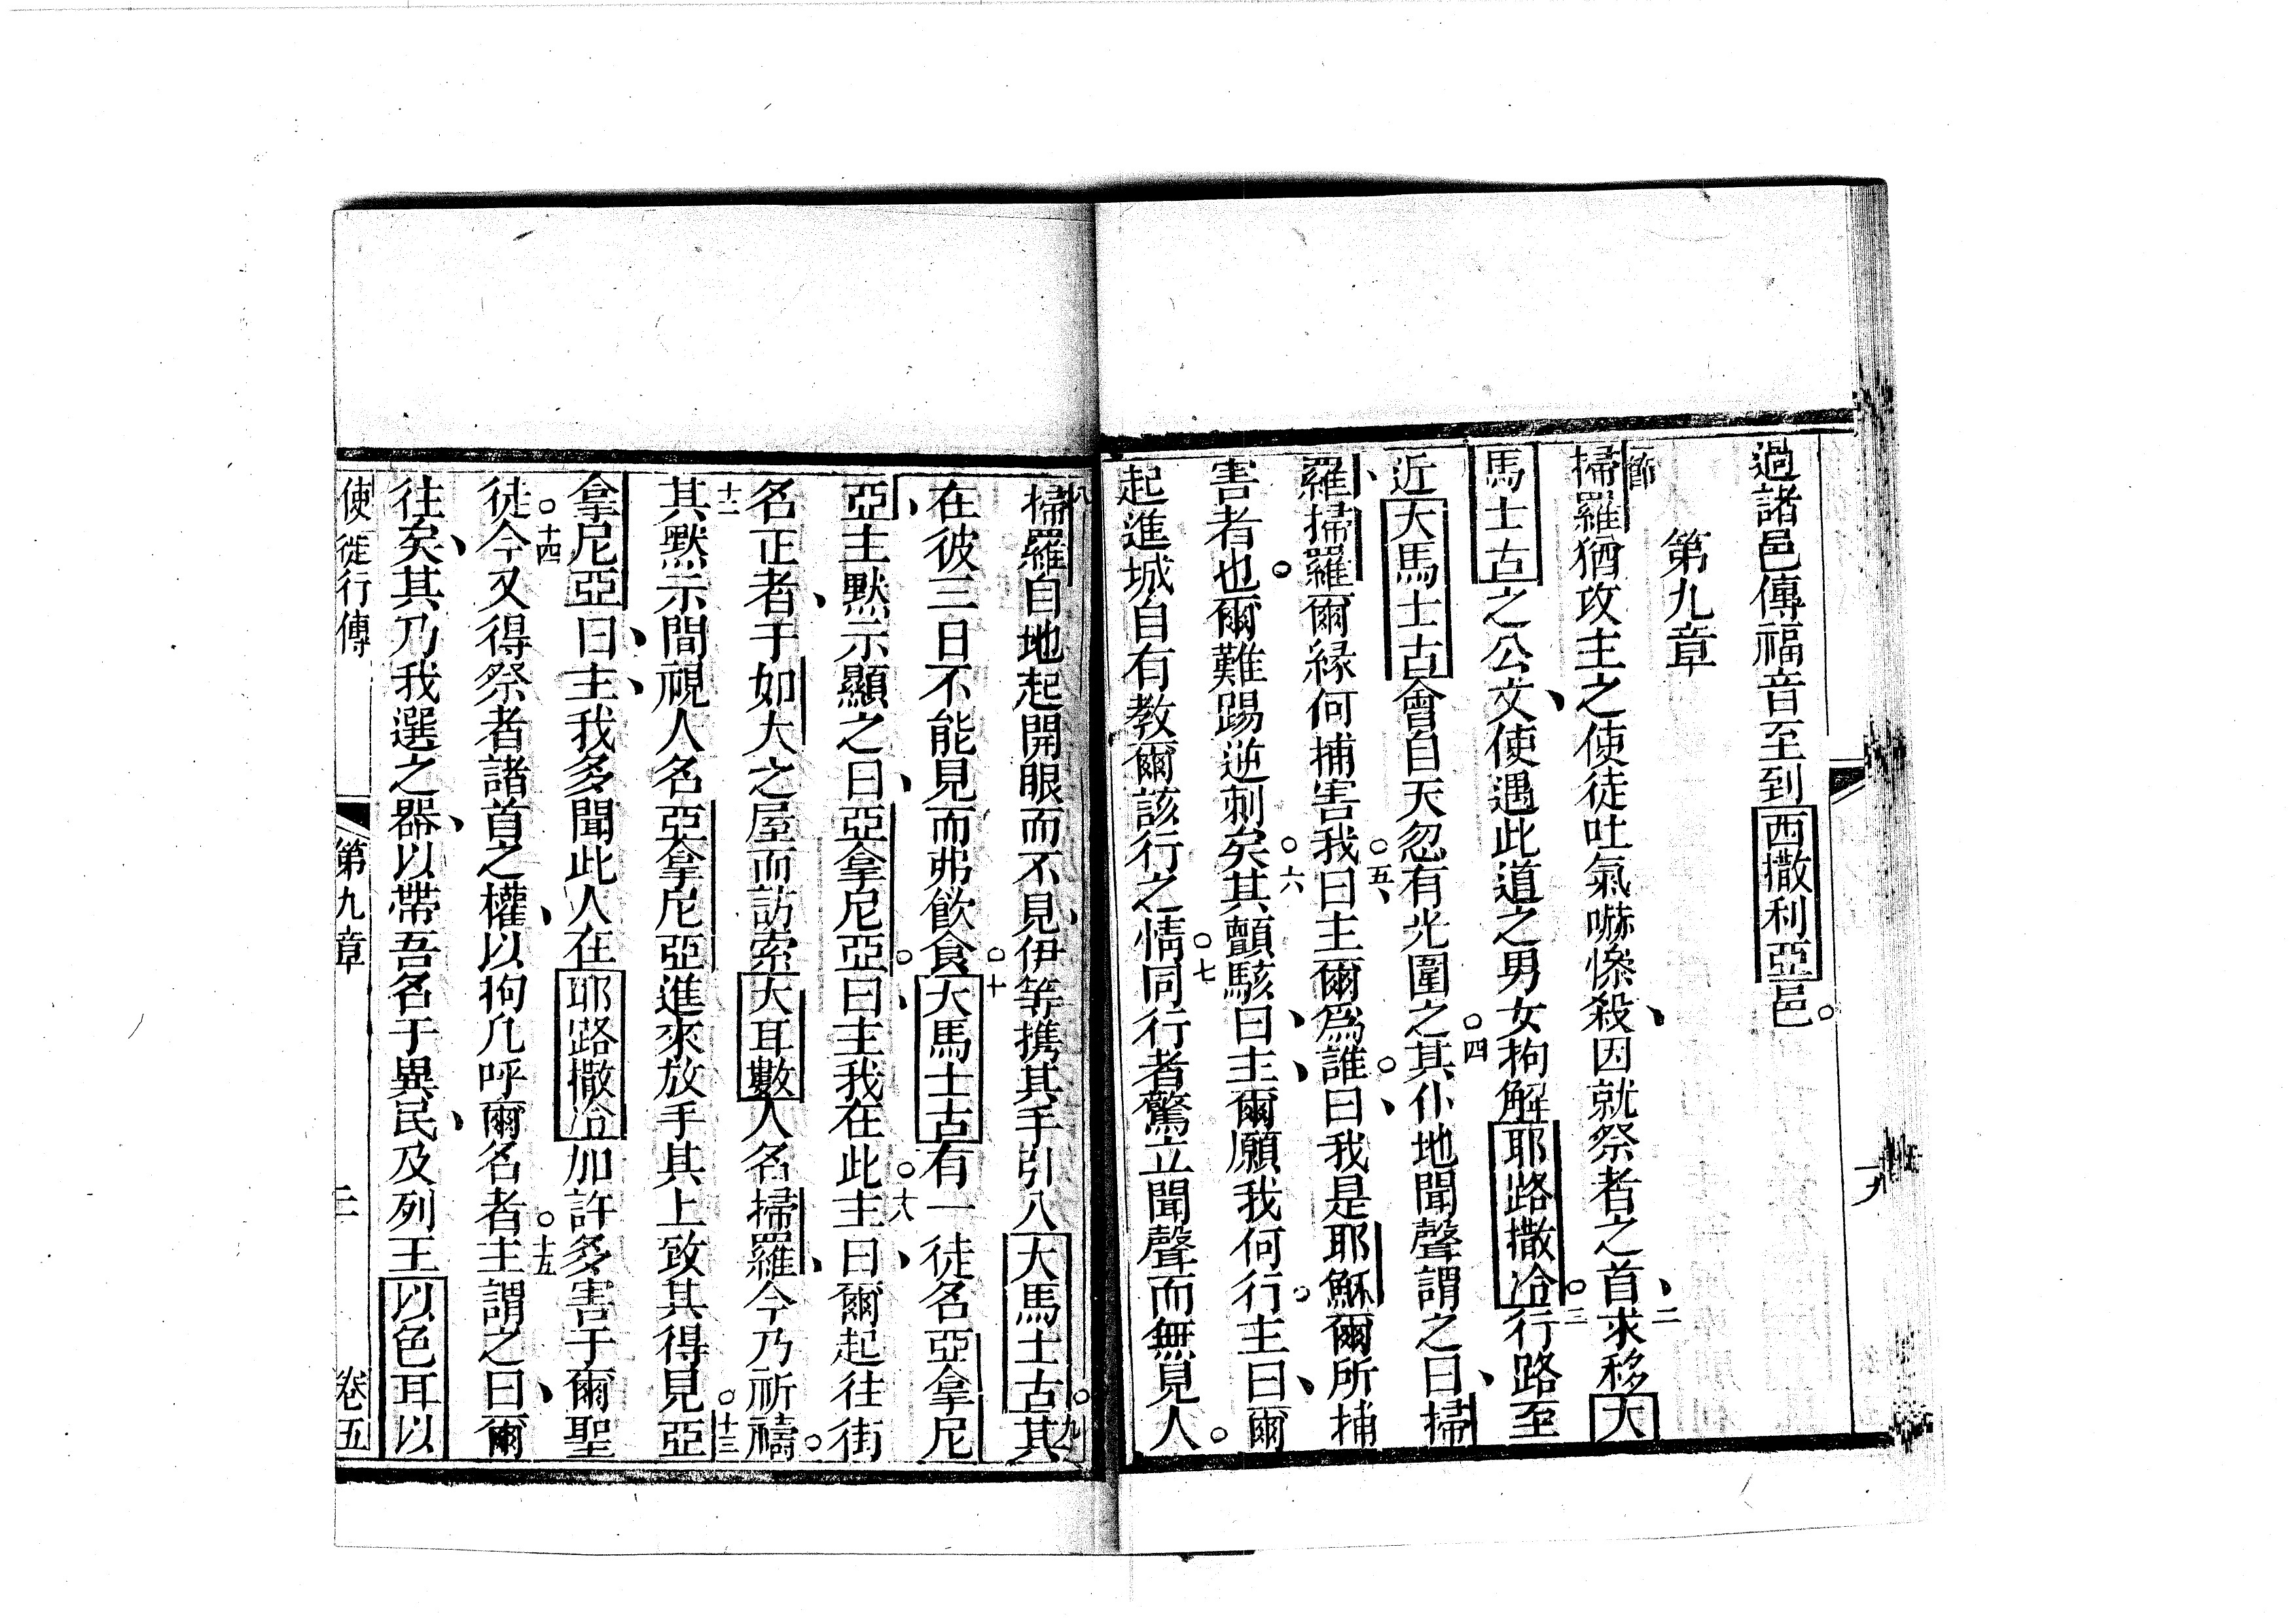 過諸邑傳福音至到西撒利亞邑。
第九章
節掃羅猶攻主之使徒吐氣嚇慘殺、因就祭者之首、二求移大
馬士古之公文、使遇此道之男女拘解耶路撒冷。三行路至
近大馬士古會自天忽有光圍之。四其仆地聞聲謂之曰、掃
羅、掃羅爾緣何捕害我。五曰、主爾爲誰。曰、我是耶穌爾所捕
害者也。爾難踢逆刺矣。六其顫駭曰、主、爾願我何行。主曰、爾
起進城自有教爾該行之情。七同行者驚立聞聲而無見人。
八掃羅自地起開眼而不見、伊等携其手引入大馬士古。九其
在彼三日不能見而弗飲食。十大馬士古有一徒名亞拿尼
亞、主默示顯之曰、亞拿尼亞。曰、主我在此。主曰、爾起往街
名正者、于如大之屋而訪索大耳數人名掃羅、今乃祈禱。
十二其默示間視人名亞拿尼亞進來放手其上致其得見。十三亞
拿尼亞曰、主、我多聞此人在耶路撒冷加許多害于爾聖
徒。十四今又得祭者諸首之權、以拘凡呼爾名者。十五主謂之曰、爾
往矣、其乃我選之器、以帶吾名于異民、及列王以色耳以
使徒行傳 第九章 二 卷五